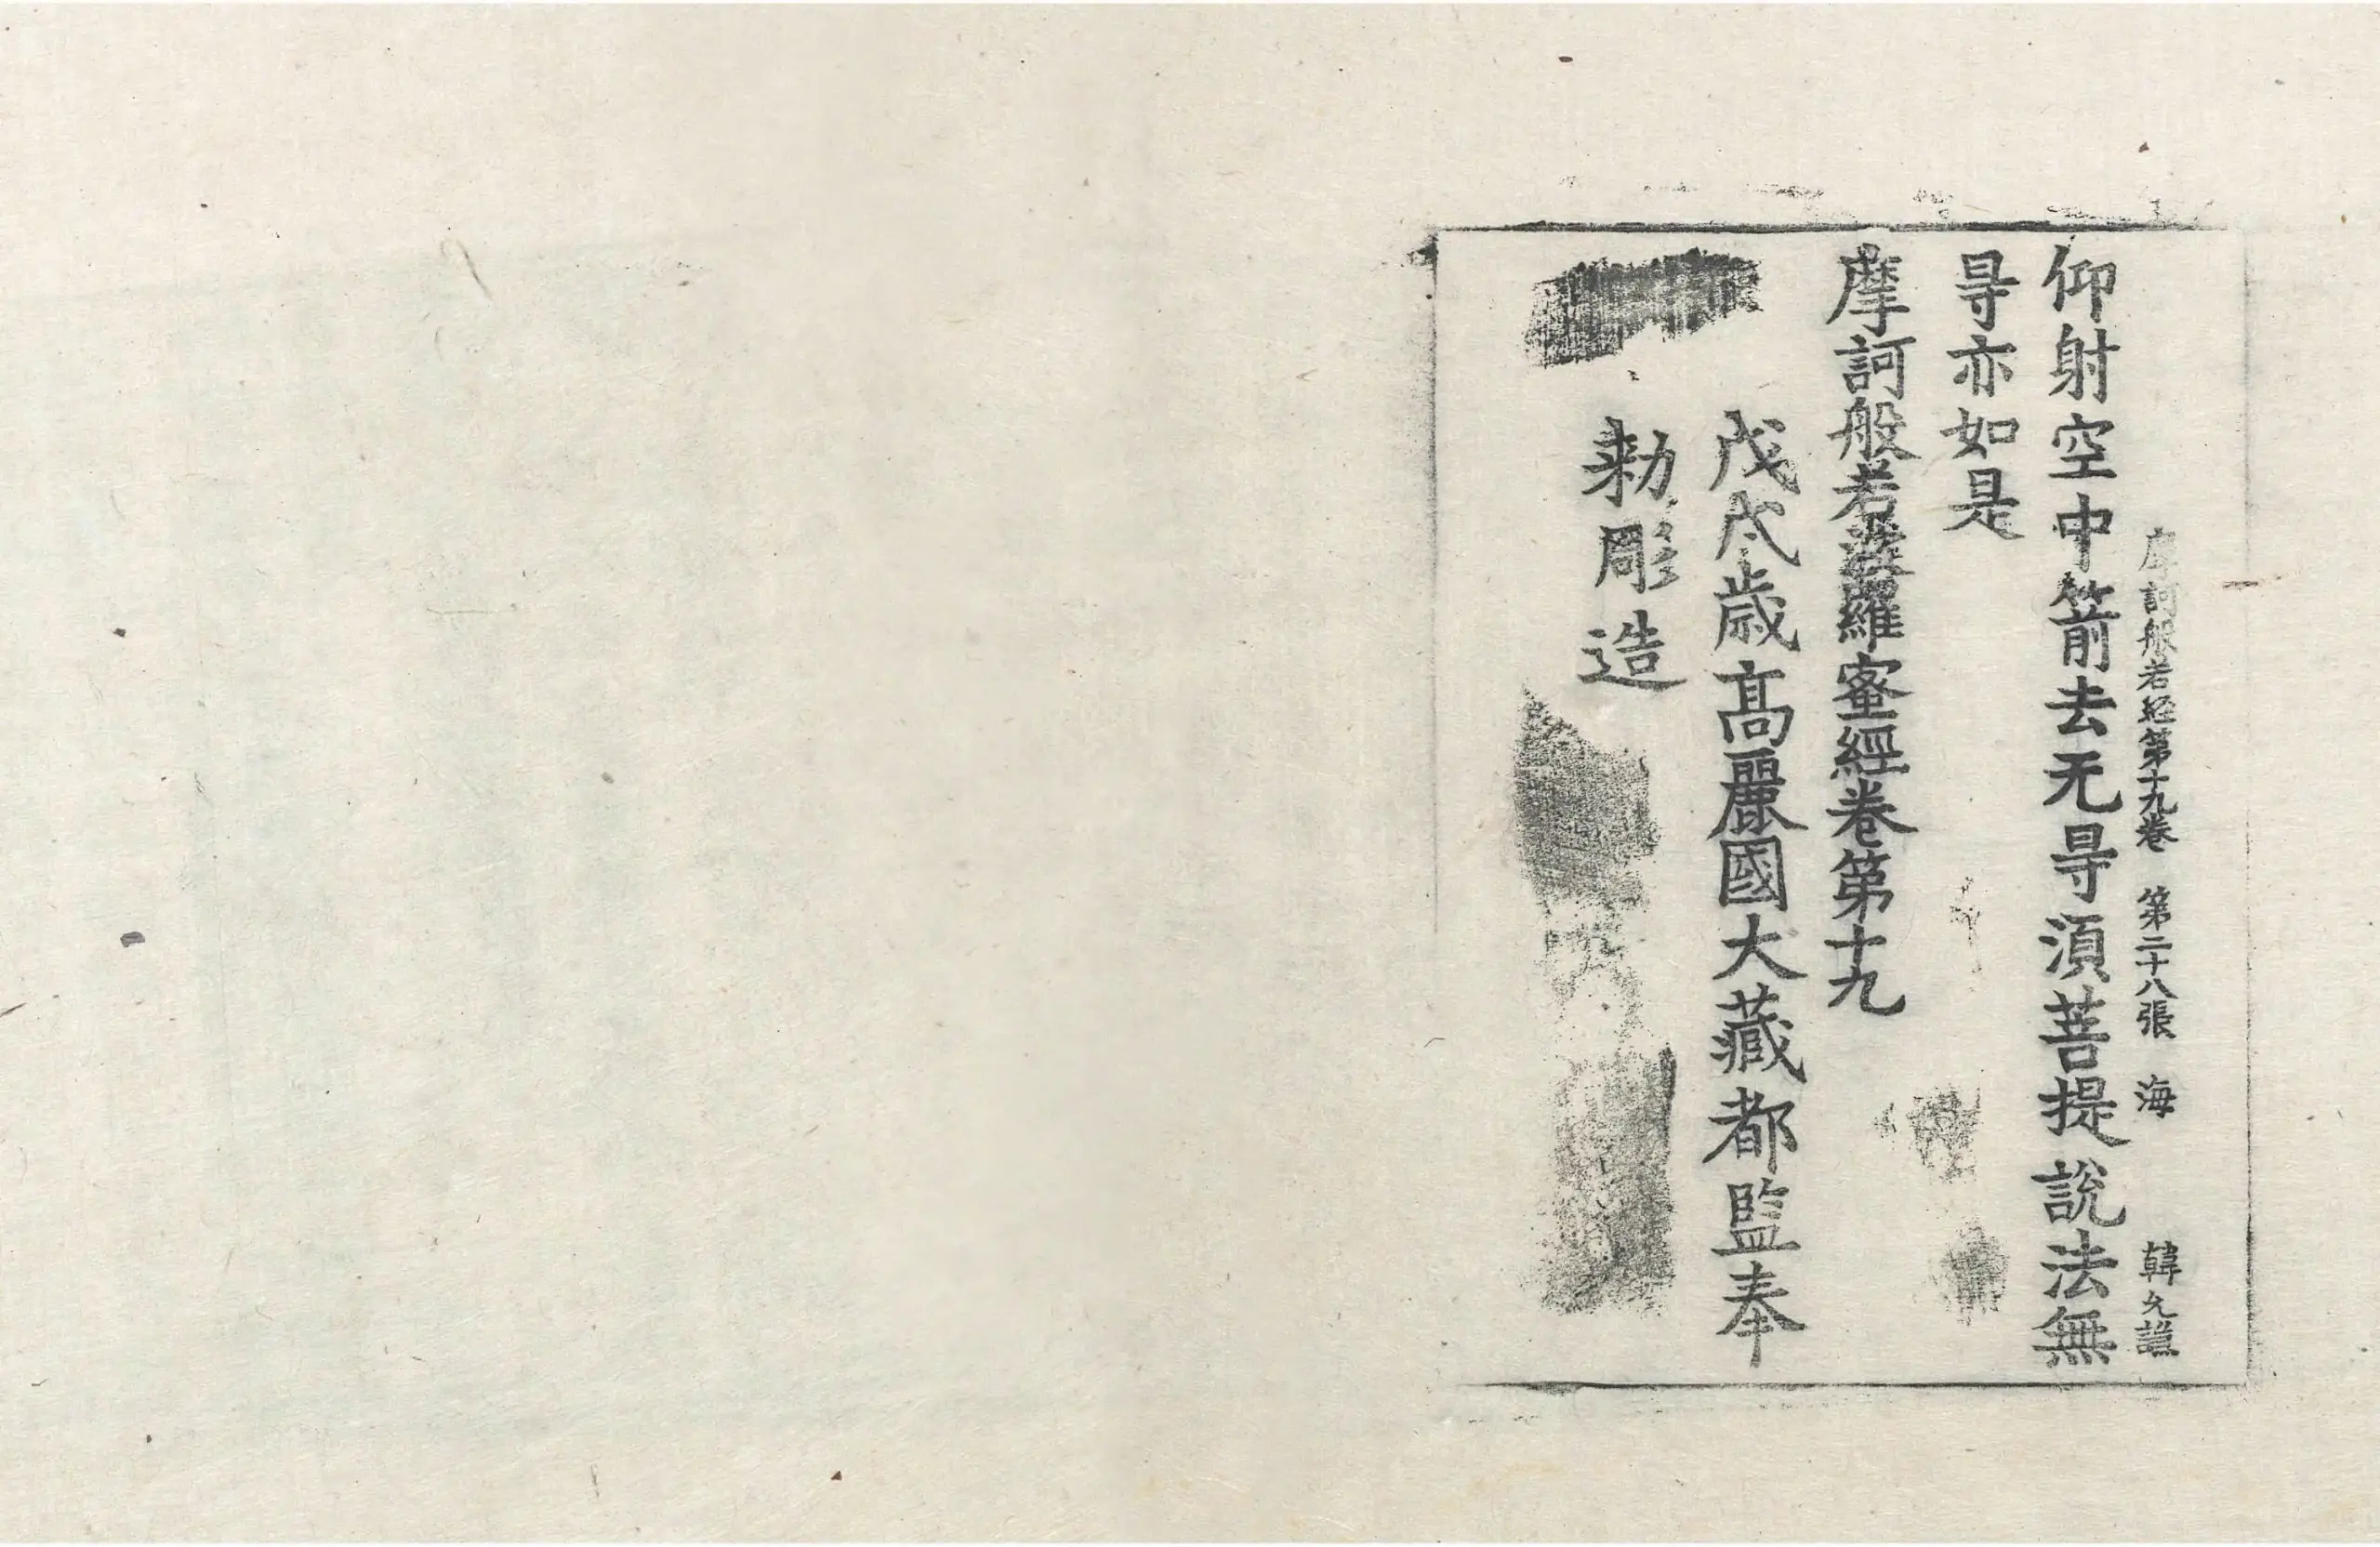 摩訶般若経第十九卷 第二十八張 海 韓允
仰射空中箭去无㝵須菩提說法無
㝵亦如是
摩訶般若波羅蜜經卷第十九
戊戌歲高麗國大藏都監奉
勑彫造